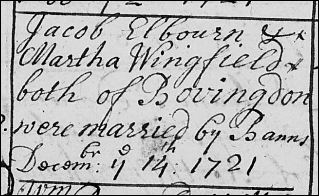 Jacob Elbourn &
Martha Wingfield
both of Bovingdon
were married by Banns
Decem.br ye 14th 1721